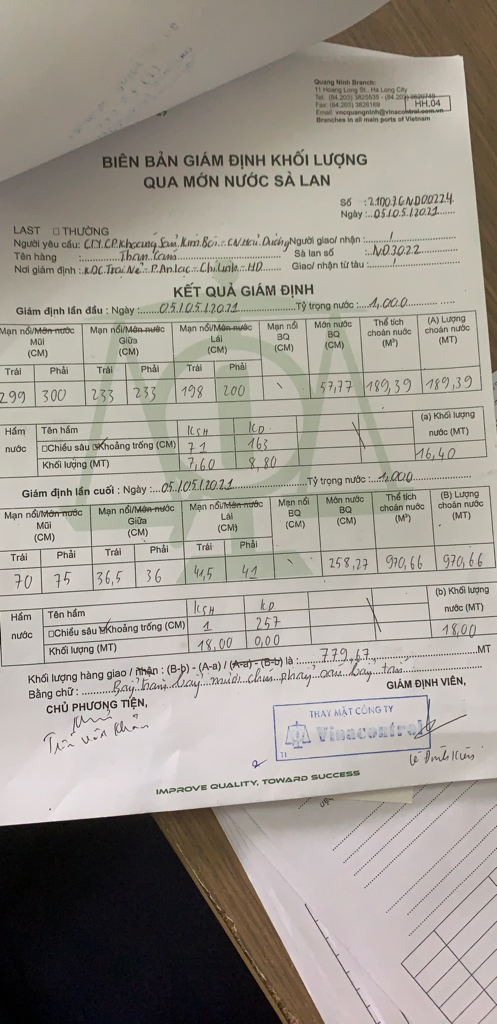 Quang Ninh Branch:
11 Hoang Long St., Ha Long City
Tel: (84.203) 3825635 - (84.203)
Fax: (84 203) 3826169 HH.04
Email: vncquangninh@vinacontrol.com.vn
Branches in all main ports of Vietnam
BIÊN BẢN GIÁM ĐỊNH KHỐI LƯỢNG
QUA MỚN NƯỚC SÀ LAN
Số : 21003GND00224
Ngày : 05/05/2021
LAST □ THƯỜNG
Người yêu cầu: CTY CP Khoáng Sản Kim Bôi - CN Hải Dương Người giao/ nhận : /
Tên hàng : Than cám Sà lan số : NĐ3022
Nơi giám định : KDC Trại Nẻ - P. An Lạc - Chí Linh - HD Giao/ nhận từ tàu : /
KẾT QUẢ GIÁM ĐỊNH
Giám định lần đầu : Ngày : 05/05/2021 Tỷ trọng nước : 1,000
Mạn nổi/Mớn nước Mũi (CM) Mạn nổi/Mớn nước Giữa (CM) Mạn nổi/Mớn nước Lái (CM) Mạn nổi BQ (CM) Mớn nước BQ (CM) Thể tích choán nước (M³) (A) Lượng choán nước (MT)
Trái Phải Trái Phải Trái Phải
299 300 233 233 198 200 \ 57,77 189,39 189,39
Hầm nước Tên hầm KSH KD (a) Khối lượng nước (MT)
□Chiều sâu ☑Khoảng trống (CM) 71 163
Khối lượng (MT) 7,60 8,80 16,40
Giám định lần cuối : Ngày : 05/05/2021 Tỷ trọng nước : 1,000
Mạn nổi/Mớn nước Mũi (CM) Mạn nổi/Mớn nước Giữa (CM) Mạn nổi/Mớn nước Lái (CM) Mạn nổi BQ (CM) Mớn nước BQ (CM) Thể tích choán nước (M³) (B) Lượng choán nước (MT)
Trái Phải Trái Phải Trái Phải
70 75 36,5 36 41,5 41 \ 258,27 970,66 970,66
Hầm nước Tên hầm KSH KD (b) Khối lượng nước (MT)
□Chiều sâu ☑Khoảng trống (CM) 1 257
Khối lượng (MT) 18,00 0,00 18,00
Khối lượng hàng giao / nhận : (B-b) - (A-a) / (A-a) - (B-b) là : 779,67 MT
Bằng chữ : Bảy trăm bảy mươi chín phẩy sáu bảy tấn
CHỦ PHƯƠNG TIỆN, GIÁM ĐỊNH VIÊN,
THAY MẶT CÔNG TY
Vinacontrol
11
Trần Văn Khẩn
Lê Đình Kiên
IMPROVE QUALITY, TOWARD SUCCESS